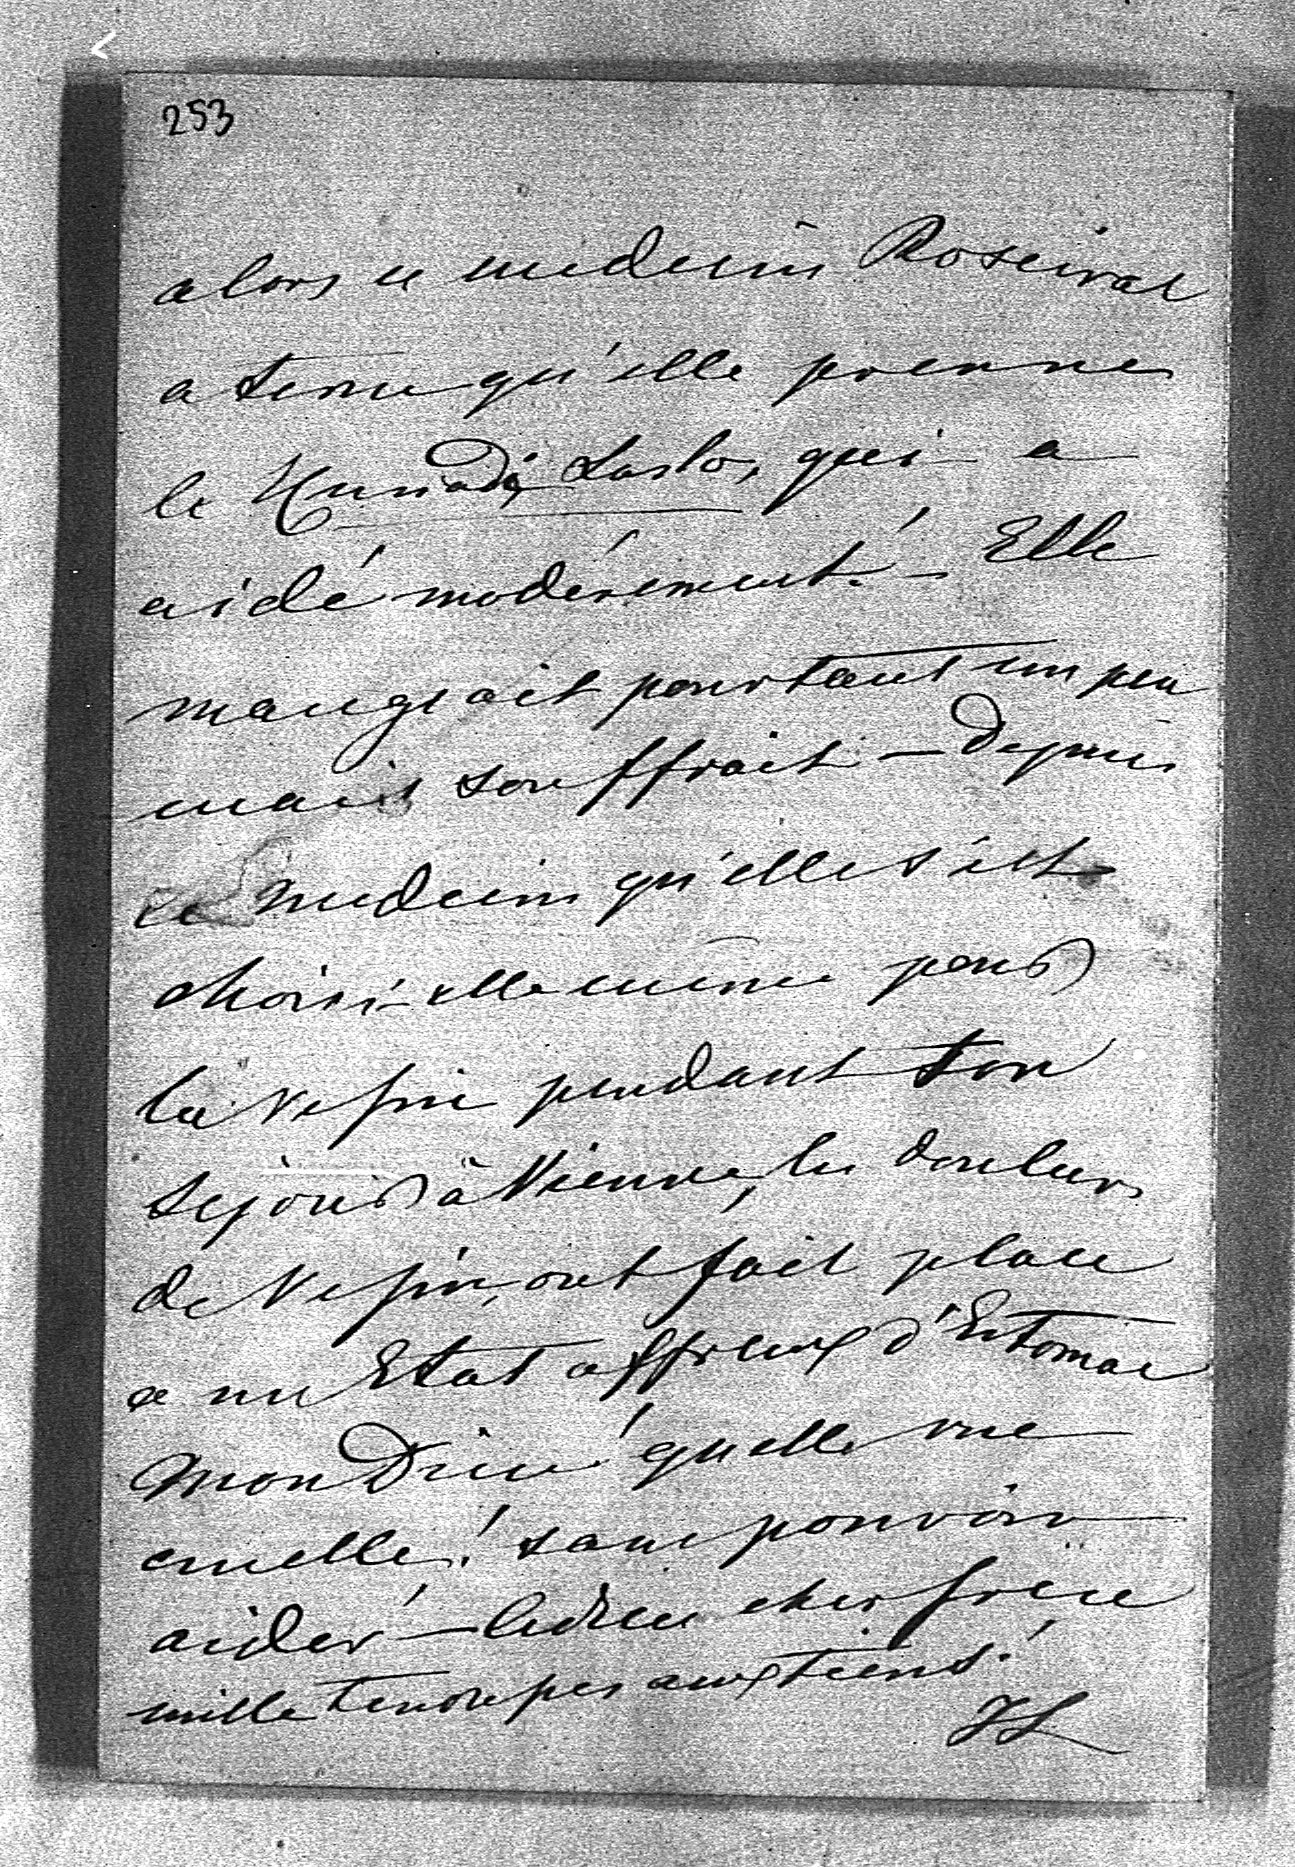 253
alors ce medecin
a tenu qu'elle prenne
le Hunadi Laslo, qui a
aidé modérement. – Elle
mangeait pourtant un peu
mais souffrait – Depuis
ce medecin qu'elle s'est
choisi elle meme pour
la Vessie pendant son
sejour à Vienne, les douleurs
de Vessie, ont fait place
a un Etat affreux d'Estomac
Mon Dieu quelle vue
cruelle! sans pouvoir
aider – cher frère
mille tendresses aux tiens!